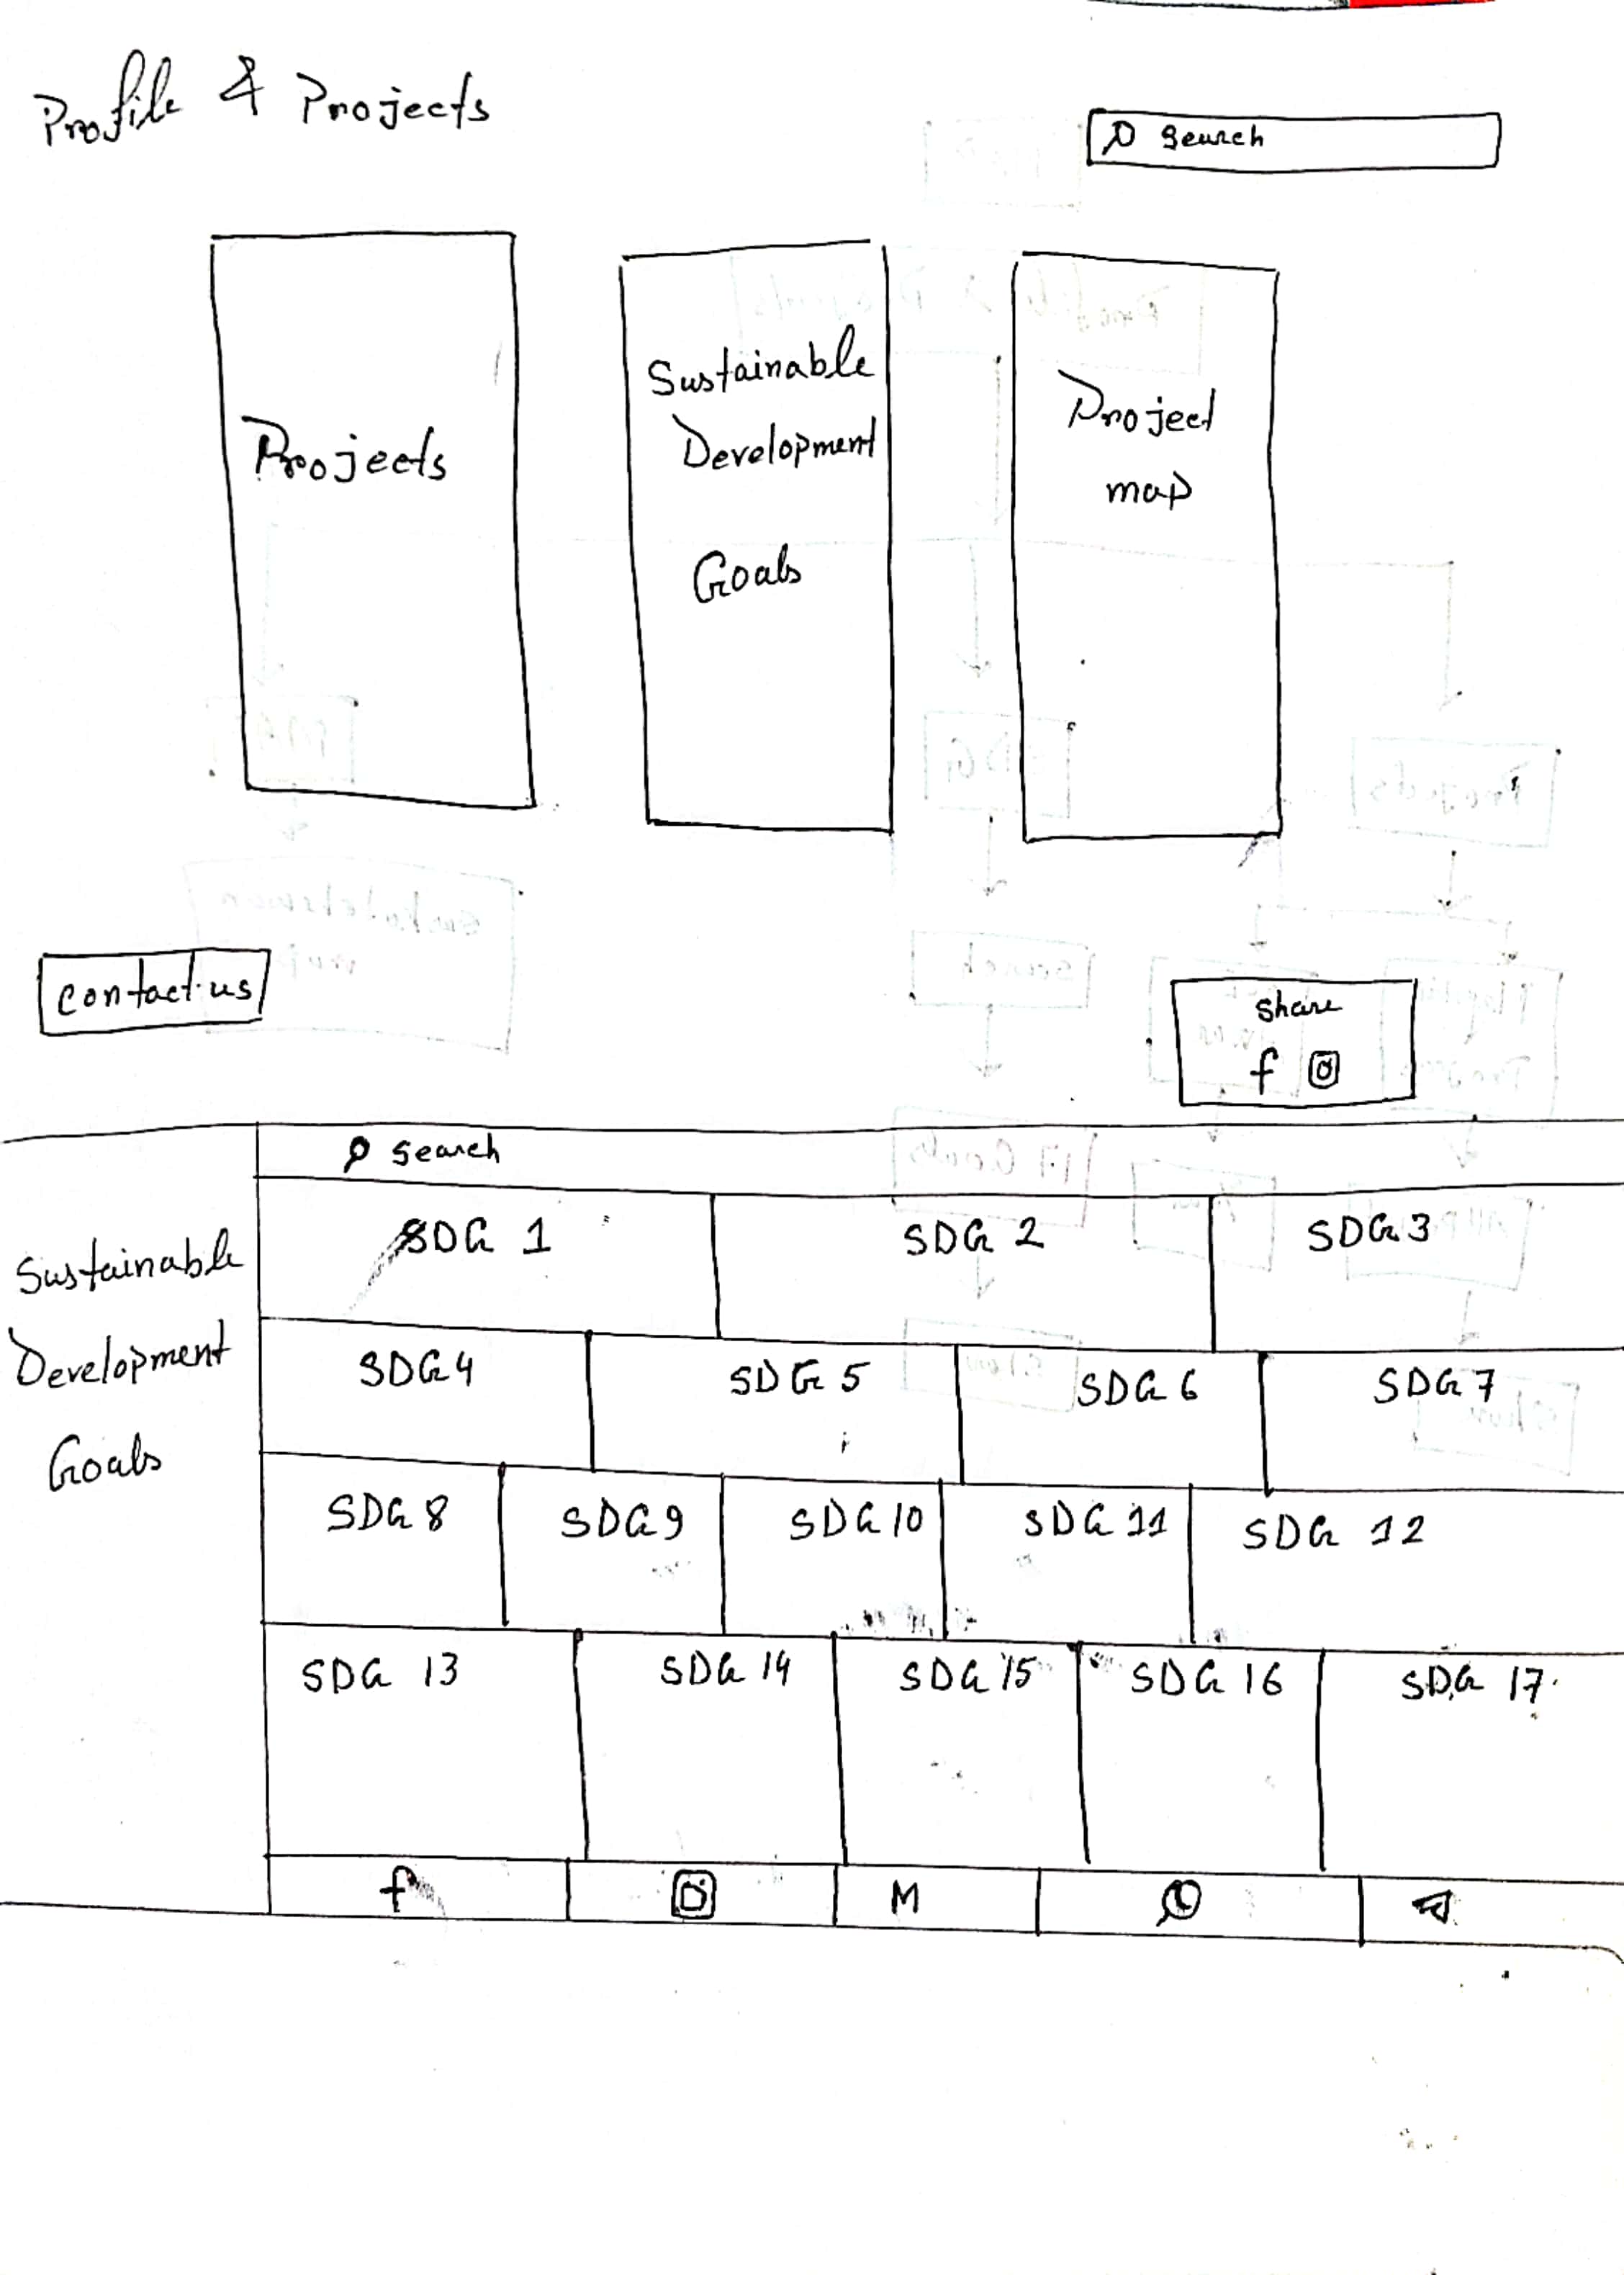 Profile & Projects
Search
Projects
Sustainable
Development
Goals
Project
map
contact us
Share
f
Search
Sustainable
Development
Goals
SDG 1 SDG 2 SDG 3
SDG 4 SDG 5 SDG 6 SDG 7
SDG 8 SDG 9 SDG 10 SDG 11 SDG 12
SDG 13 SDG 14 SDG 15 SDG 16 SDG 17
f M